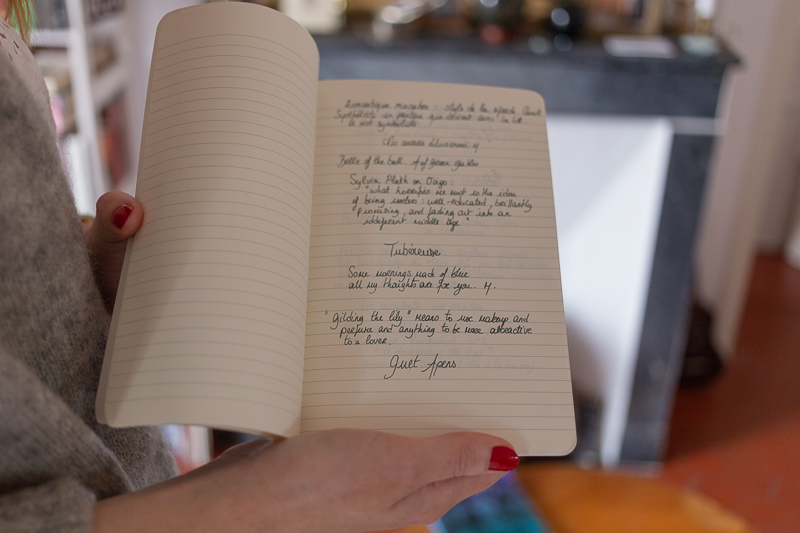 Romantique macabre : style de la
Synthétiste
is not symboliste
Belle of the ball. A of Green gables
Sylvia Plath on Virgo :
"what horrifies me most is the idea
of being useless : well-educated, brilliantly
promising, and fading out into an
indifferent middle age"
Tubéreuse
Some mornings made of blue
all my thoughts are for you. M.
"gilding the lily" means to use makeup and
perfume and anything to be more attractive
to a lover.
Guet Apens